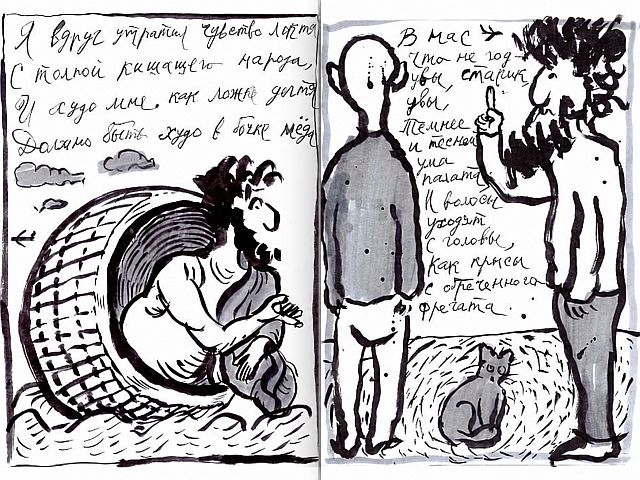 Я вдруг утратил чувство локтя
С толпой кишащего народа,
И худо мне, как ложке дёгтя
Должно быть худо в бочке мёда
В нас
что не год-
увы, старик,
увы,
Темнее
и тесней
ума
палата,
И волосы
уходят
с головы,
как крысы
с обреченного
фрегата.